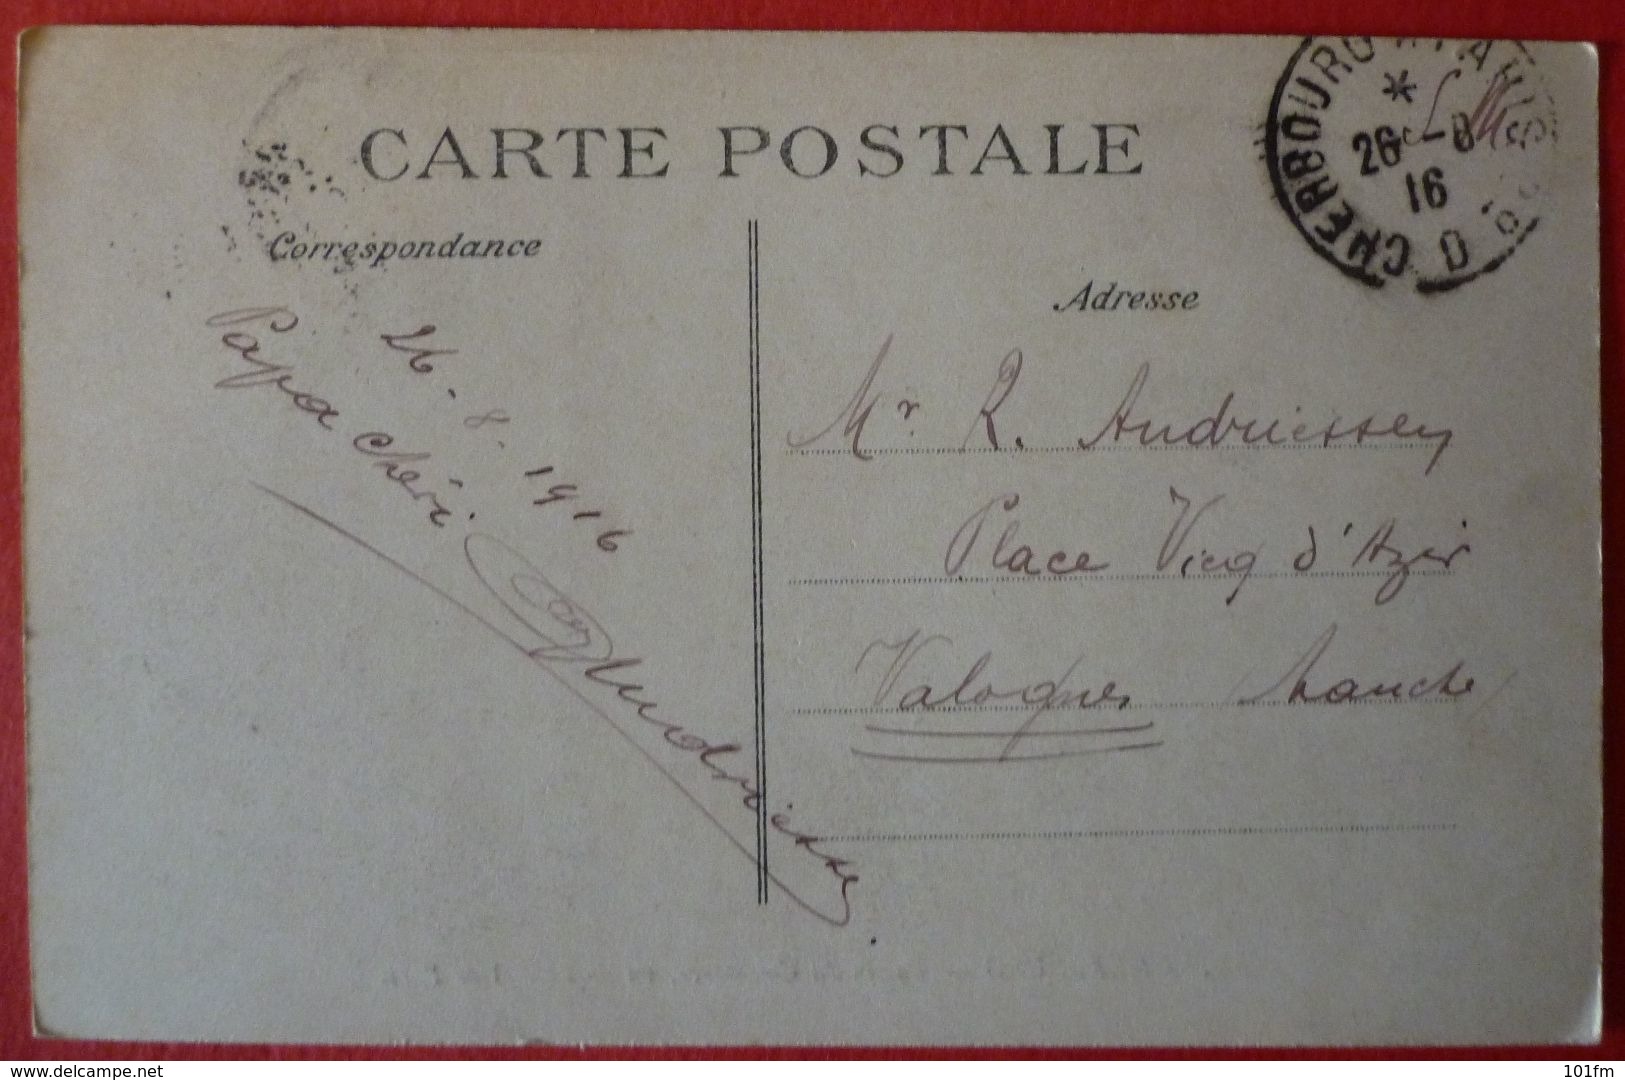 CARTE POSTALE
Correspondance
26.8.1916
Papa chéri
Andriessen
Adresse
Mr R. Andriessen
Place Vicq d'Azir
Valognes Manche
CHERBOURG
26 -8
16
delcampe.net
101fm